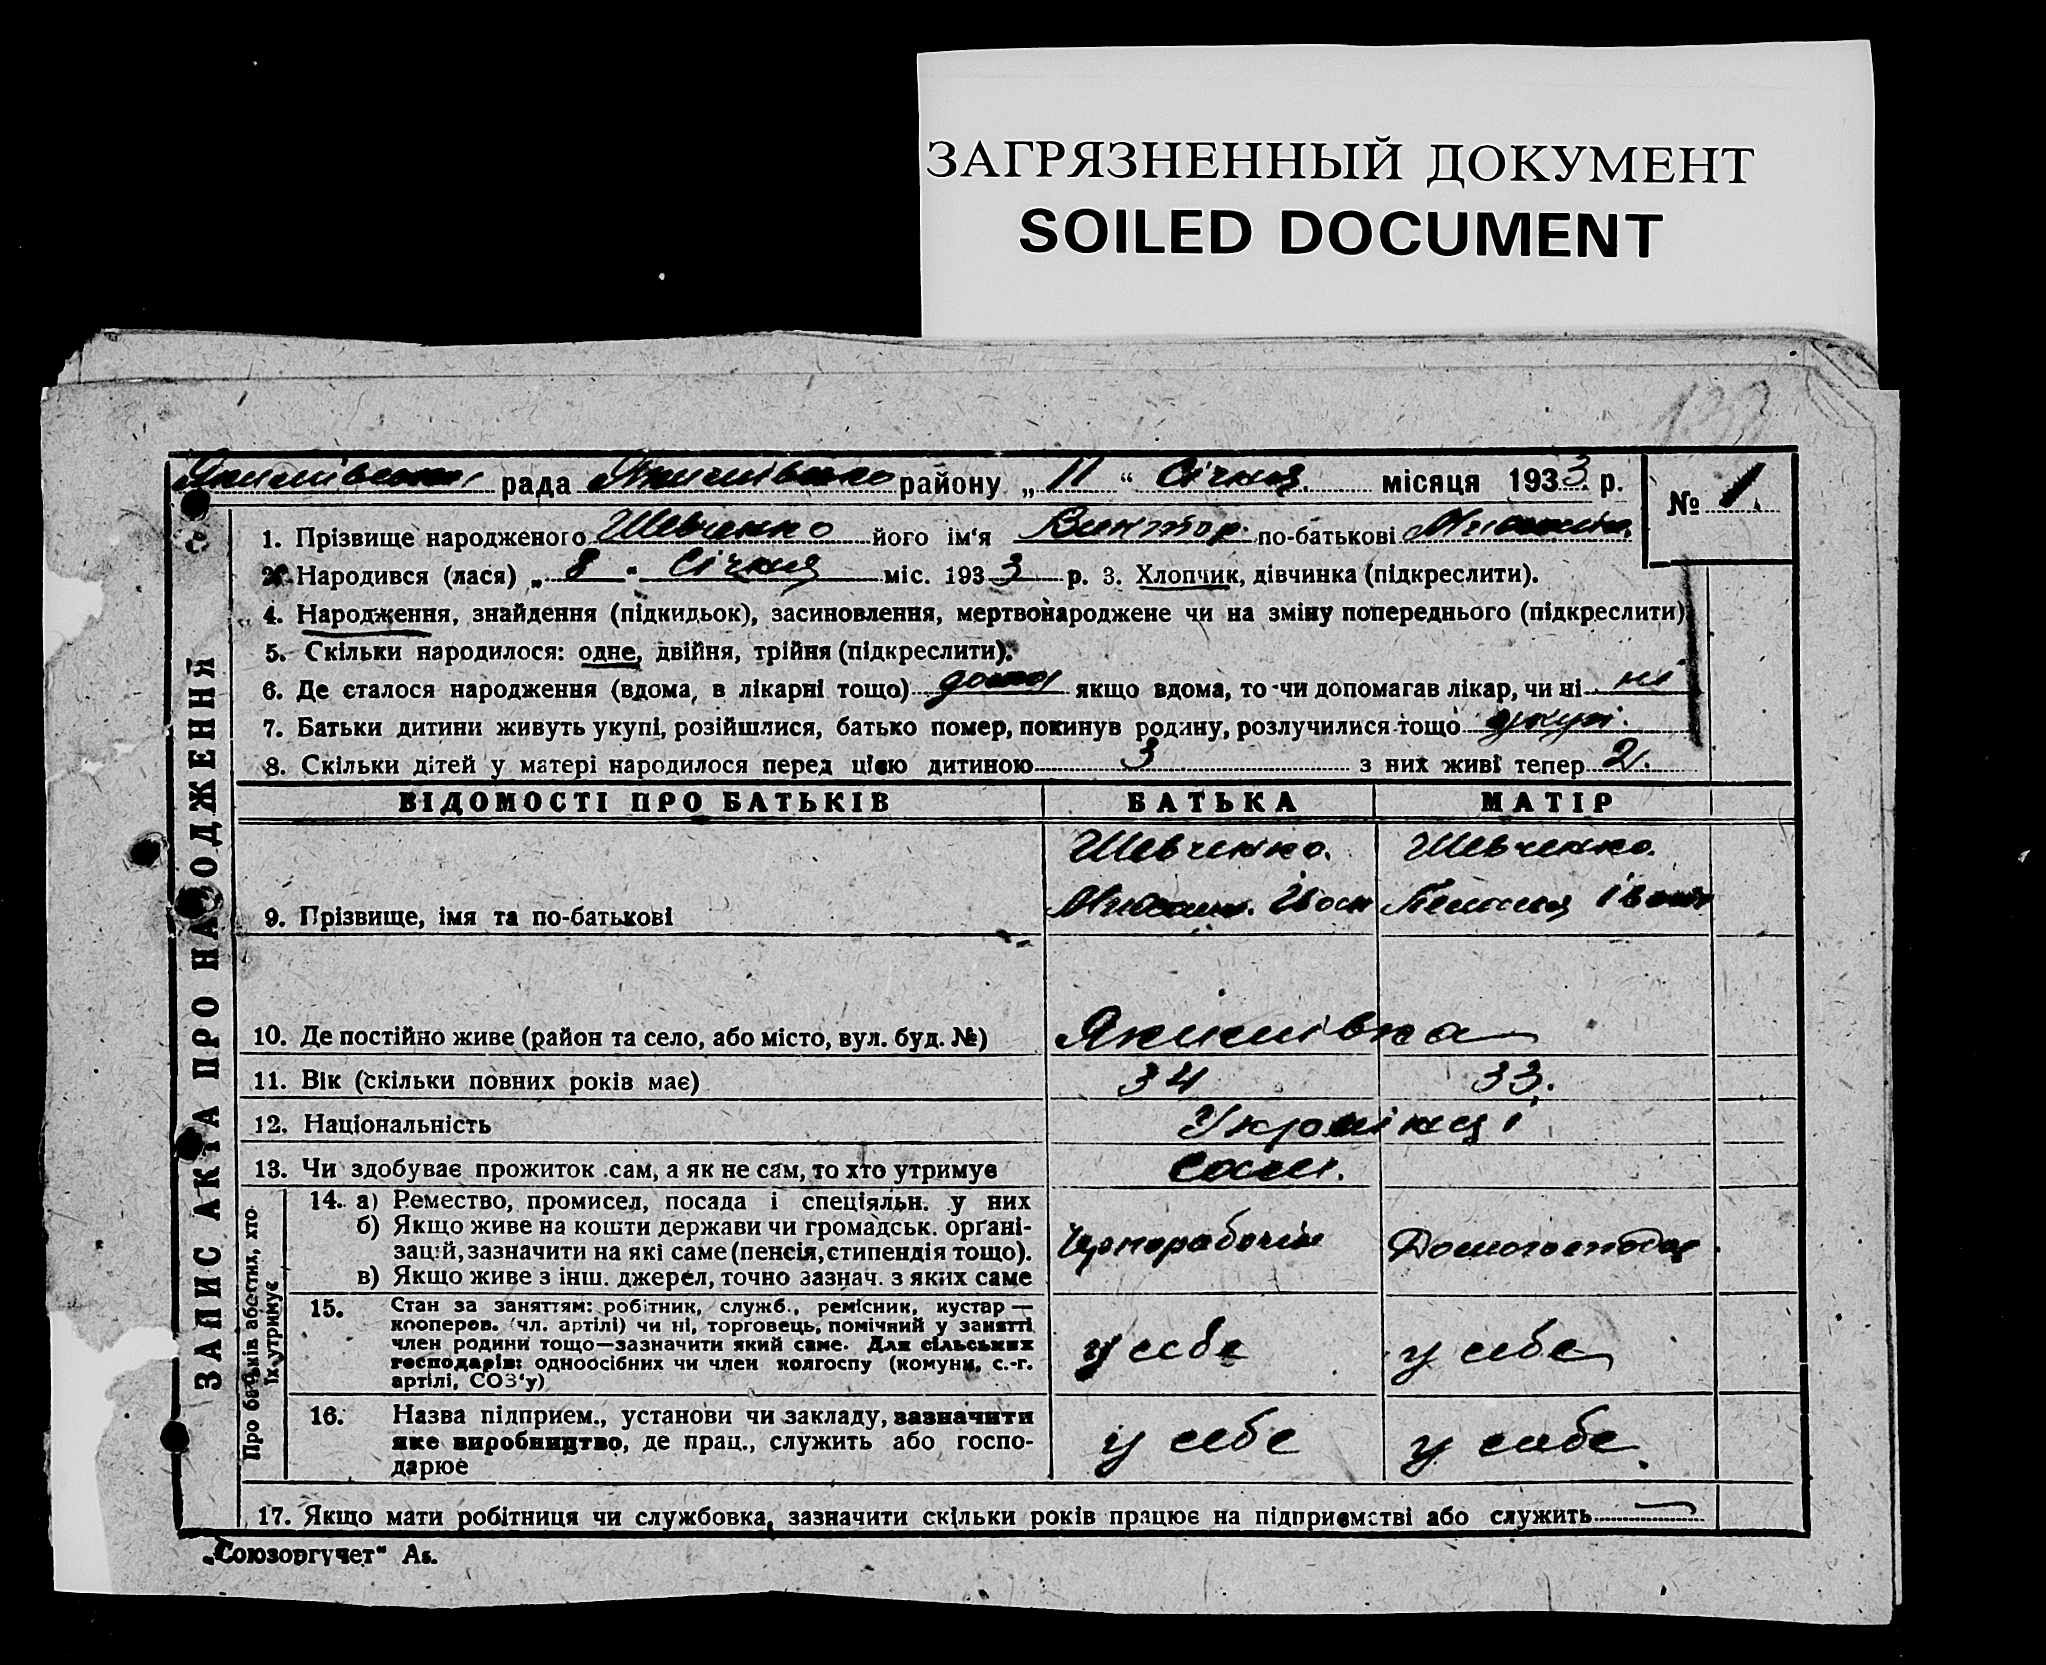 ЗАГРЯЗНЕННЫЙ ДОКУМЕНТ
SOILED DOCUMENT
рада району „ 11 “ Січня місяця 1933 р. № 1.
1. Прізвище народженого Шевченко його ім‘я Виктор по-батькові
2. Народився (лася) „ 8 " Січня міс. 1933 р. 3. Хлопчик, дівчинка (підкреслити).
4. Народження, знайдення (підкидьок), засиновлення, мертвонароджене чи на зміну попереднього (підкреслити)
5. Скільки народилося: одне, двійня, трійня (підкреслити).
6. Де сталося народження (вдома, в лікарні тощо) дома якщо вдома, то чи допомагав лікар, чи ні ні
7. Батьки дитини живуть укупі, розійшлися, батько помер, покинув родину, розлучилися тощо укупі.
8. Скільки дітей у матері народилося перед цією дитиною 3 з них живі тепер 2.
ВІДОМОСТІ ПРО БАТЬКІВ БАТЬКА МАТІР
Шевченко. Шевченко.
9. Прізвище, імя та по-батькові
10. Де постійно живе (район та село, або місто, вул. буд. №) Якимівка
11. Вік (скільки повних років має) 34 33.
12. Національність Українці
13. Чи здобуває прожиток сам, а як не сам, то хто утримує Сами.
14. а) Ремество, промисел, посада і спеціяльн. у них
б) Якщо живе на кошти держави чи громадськ. орґані-
зацій, зазначити на які саме (пенсія, стипендія тощо).
в) Якщо живе з інш. джерел, точно зазнач. з яких саме
Чернорабочій
15. Стан за заняттям: робітник, служб., ремісник, кустар —
кооперов. (чл. артілі) чи ні, торговець, помічний у занятті
член родини тощо—зазначити який саме. Для сільських
господарів: одноосібних чи член колгоспу (комуни, с.-г.
артілі, СОЗ‘у)
у себе у себе
16. Назва підприєм., установи чи закладу, зазначити
яке виробництво, де прац., служить або госпо-
дарює
у себе у себе.
17. Якщо мати робітниця чи службовка, зазначити скільки років працює на підприємстві або служить
„Союзоргучет“
ЗАПИС АКТА ПРО НАРОДЖЕННЯ
Про батьків або тих, хто
їх утримує